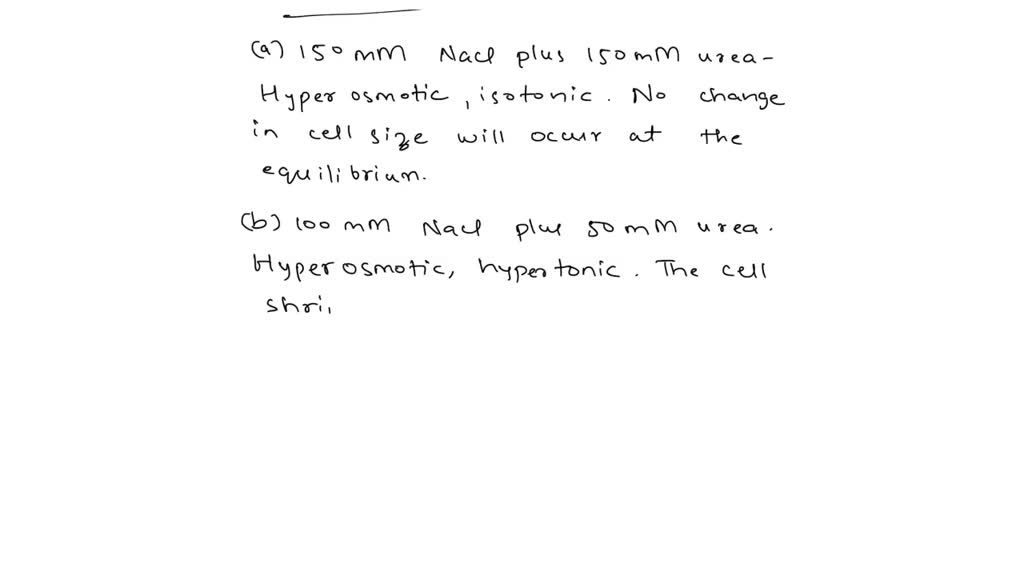 (a) 150 mM Nacl plus 150 mM urea-
Hyper osmotic, isotonic. No change
in cell size will occur at the
equilibrium.
(b) 100 mM Nacl plus 50 mM urea.
Hyper osmotic, hypertonic. The cell
shri